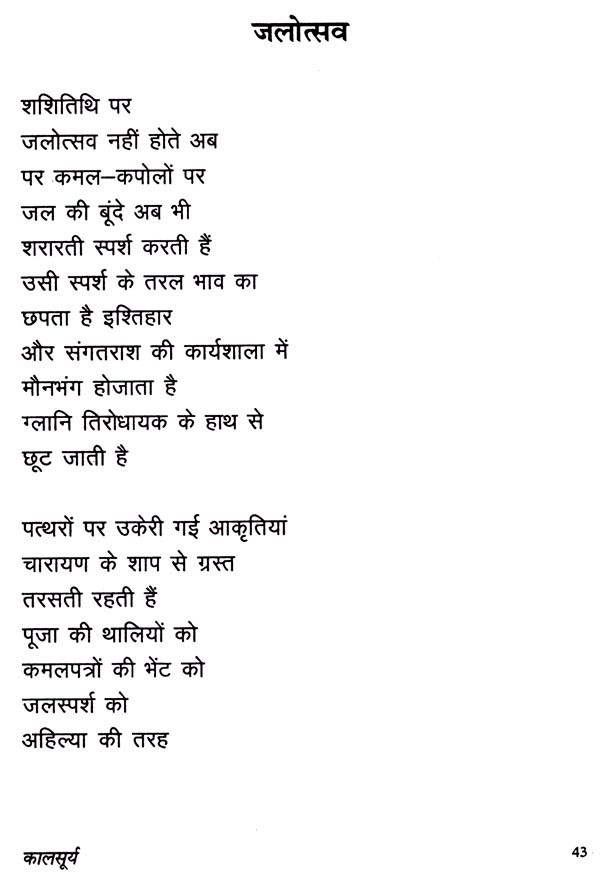 जलोत्सव
शशितिथि पर
जलोत्सव नहीं होते अब
पर कमल–कपोलों पर
जल की बूंदे अब भी
शरारती स्पर्श करती हैं
उसी स्पर्श के तरल भाव का
छपता है इश्तिहार
और संगतराश की कार्यशाला में
मौनभंग होजाता है
ग्लानि तिरोधायक के हाथ से
छूट जाती है
पत्थरों पर उकेरी गई आकृतियां
चारायण के शाप से ग्रस्त
तरसती रहती हैं
पूजा की थालियों को
कमलपत्रों की भेंट को
जलस्पर्श को
अहिल्या की तरह
कालसूर्य 43